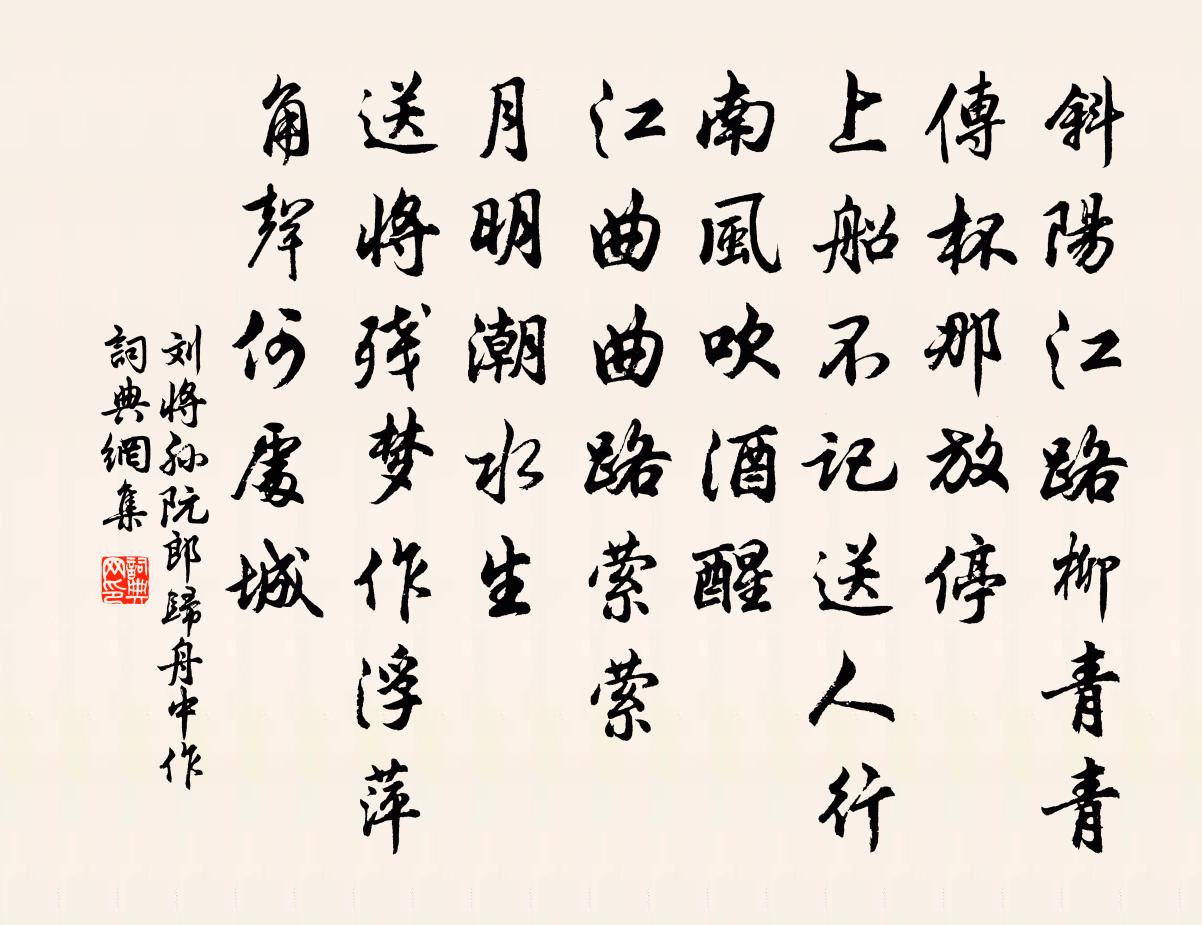 斜陽江路柳青青
傳杯那放停
上船不記送人行
南風吹酒醒
江曲曲路萦萦
月明潮水生
送將残梦作浮萍
角聲何處城
刘將孙阮郎歸舟中作
詞典網集
詞典网印